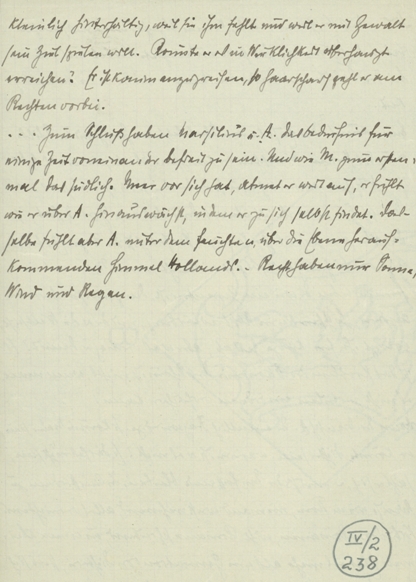 kleinlich hinterhältig, weil sie ihm fehlt und weil er mit Gewalt
sein Ziel will. Könnte er es in Wirklichkeit überhaupt
erreichen? Er ist kaum anzugreifen, so haarscharf geht er am
Rechten vorbei.
... Zum Schluß haben Marsilius u. A. das Bedürfnis für
einige Zeit voneinander befreit zu sein. Und wie M. zum ersten-
mal das südliche Meer vor sich hat, atmet er weit auf, er fühlt
wie er über A. hinauswächst, indem er zu sich selbst findet. Das-
selbe fühlt aber A. unter dem feuchten, über die Ebene herauf-
kommenden Himmel Hollands. - Recht haben nur Sonne,
Wind und Regen.
IV/2
238